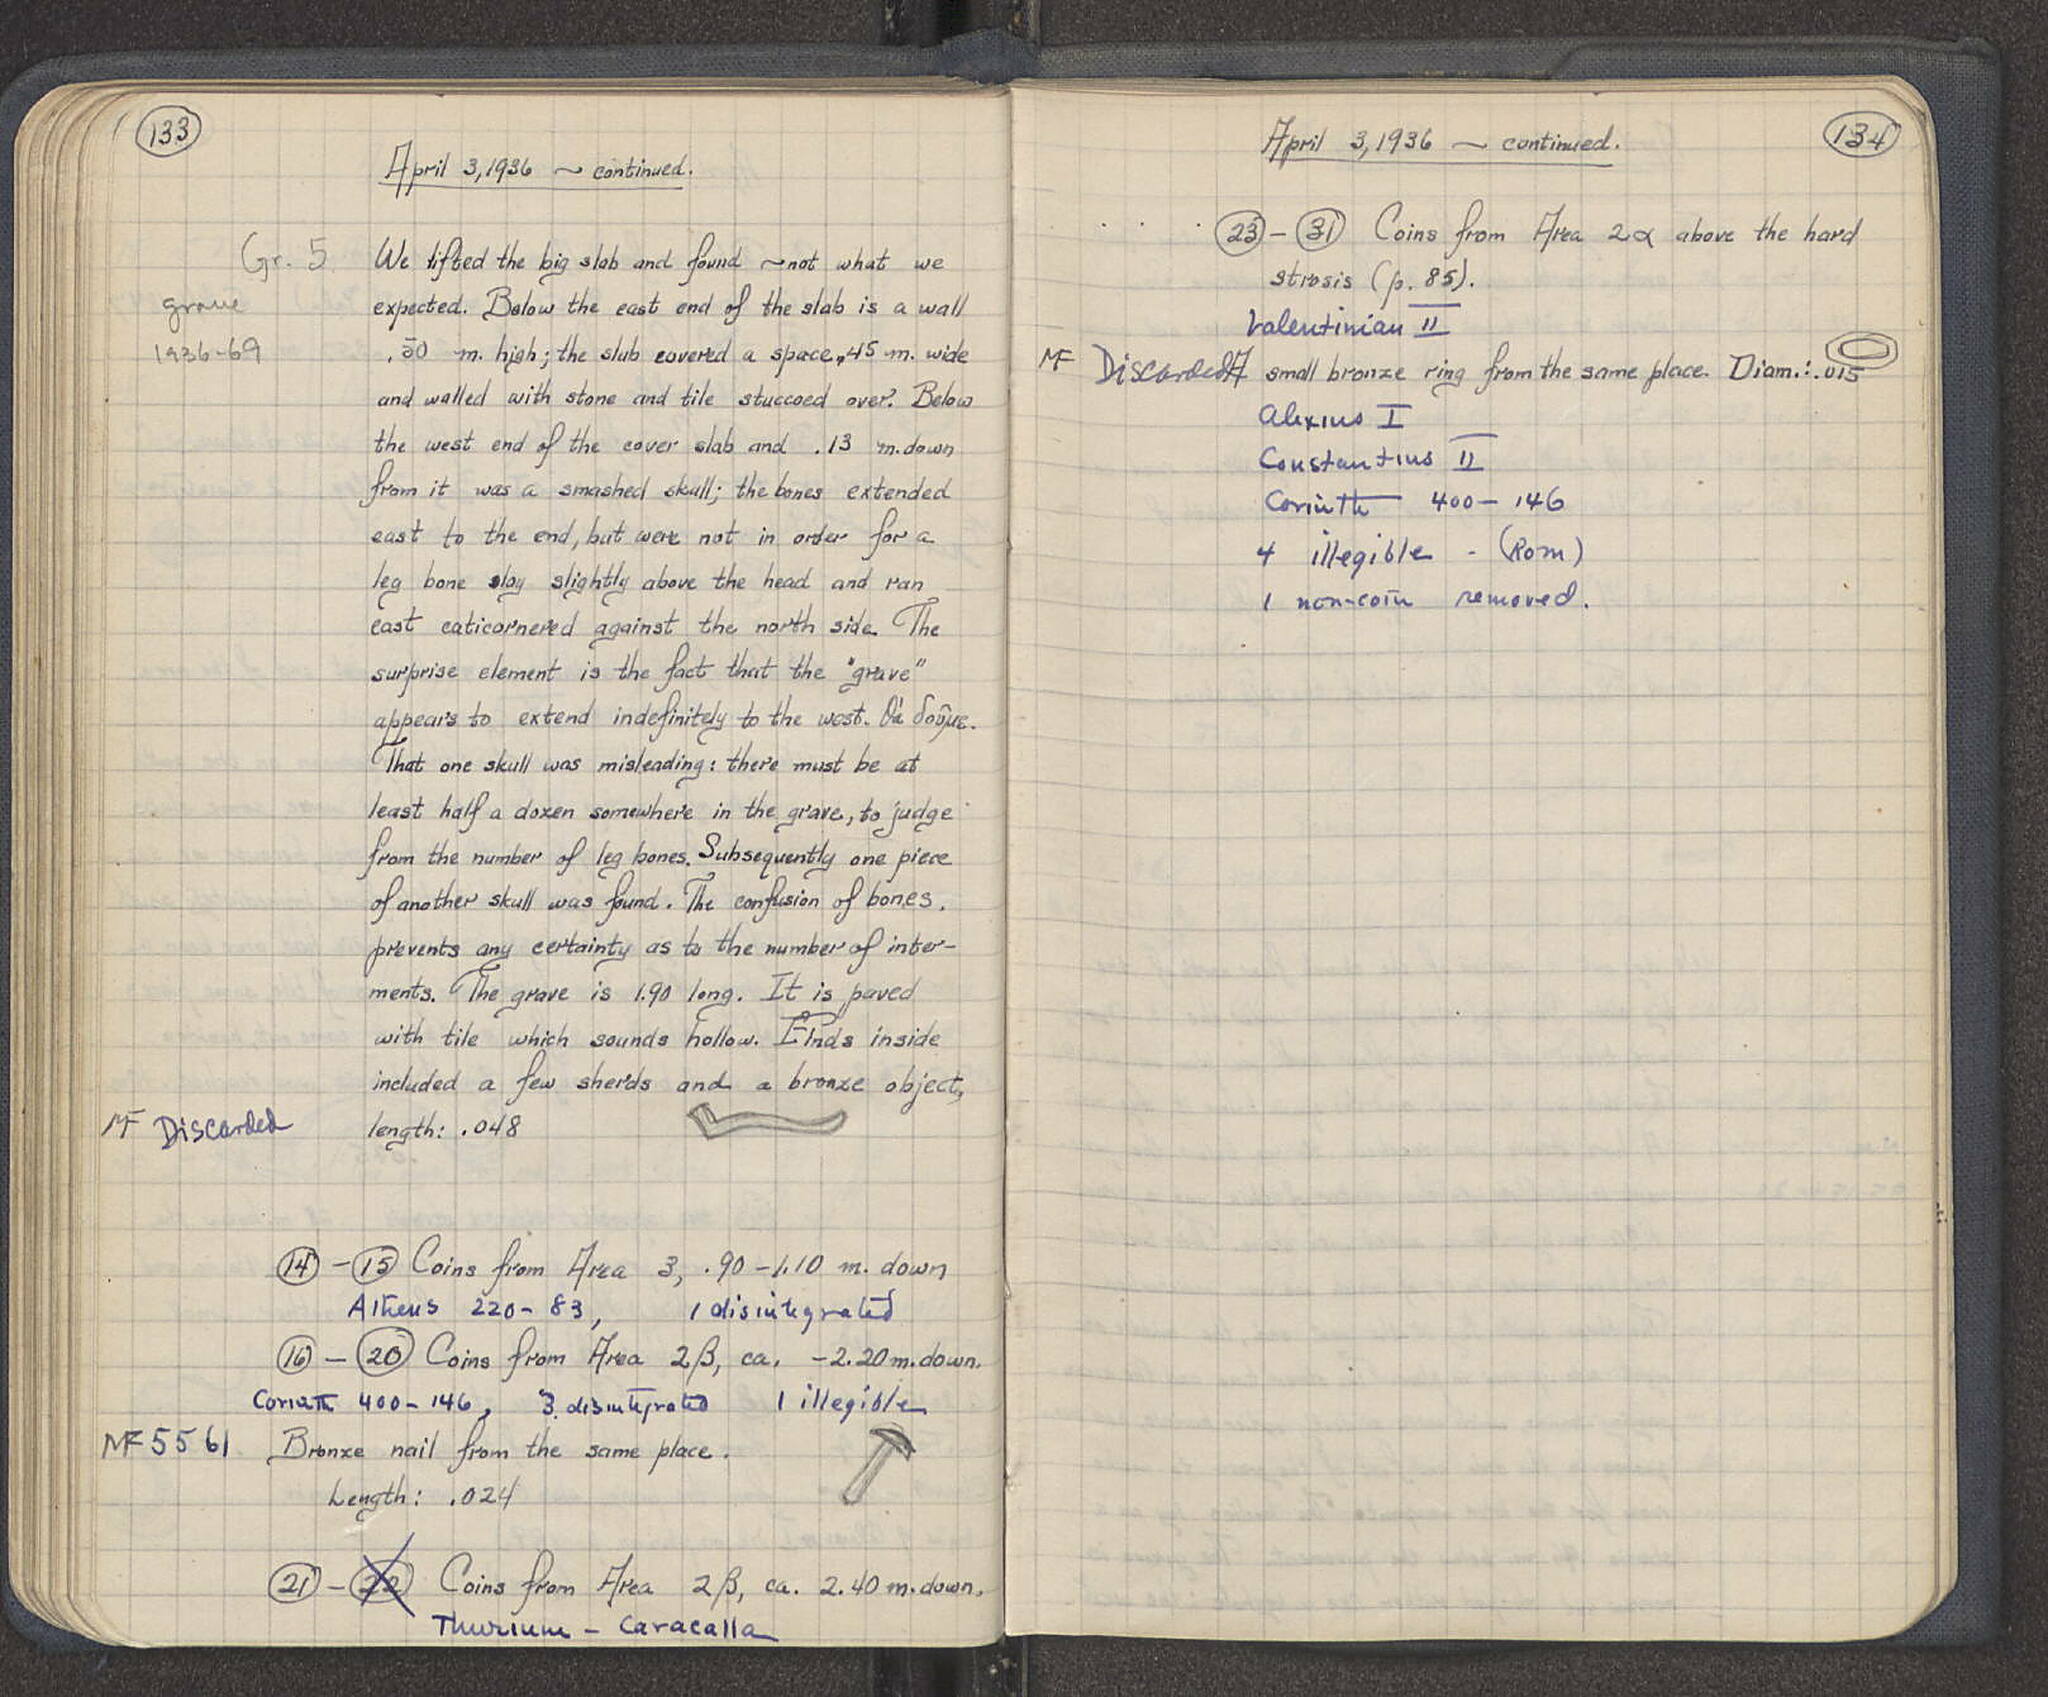 133
April 3, 1936 ~ continued.
Gr. 5
grave
1936-69
We lifted the big slab and found ~ not what we
expected. Below the east end of the slab is a wall
.50 m. high; the slab covered a space .45 m. wide
and walled with stone and tile stuccoed over. Below
the west end of the cover slab and .13 m. down
from it was a smashed skull; the bones extended
east to the end, but were not in order for a
leg bone lay slightly above the head and ran
east caticornered against the north side. The
surprise element is the fact that the "grave"
appears to extend indefinitely to the west. Θὰ δοῦμε.
That one skull was misleading: there must be at
least half a dozen somewhere in the grave, to judge
from the number of leg bones. Subsequently one piece
of another skull was found. The confusion of bones
prevents any certainty as to the number of inter-
ments. The grave is 1.90 long. It is paved
with tile which sounds hollow. Finds inside
included a few sherds and a bronze object,
MF Discarded length: .048
14 - 15 Coins from Area 3, .90 - 1.10 m. down
Athens 220-83, 1 disintegrated
16 - 20 Coins from Area 2β, ca. -2.20 m. down.
Corinth 400-146, 3 disintegrated 1 illegible
MF 5561 Bronze nail from the same place.
Length: .024
21 - 22 Coins from Area 2β, ca. 2.40 m. down.
Thurium - Caracalla
134
April 3, 1936 ~ continued.
23 - 31 Coins from Area 2α above the hard
strosis (p. 85).
Valentinian II
MF Discarded A small bronze ring from the same place. Diam.: .015
Alexius I
Constantius II
Corinth 400-146
4 illegible - (Rom)
1 non-coin removed.